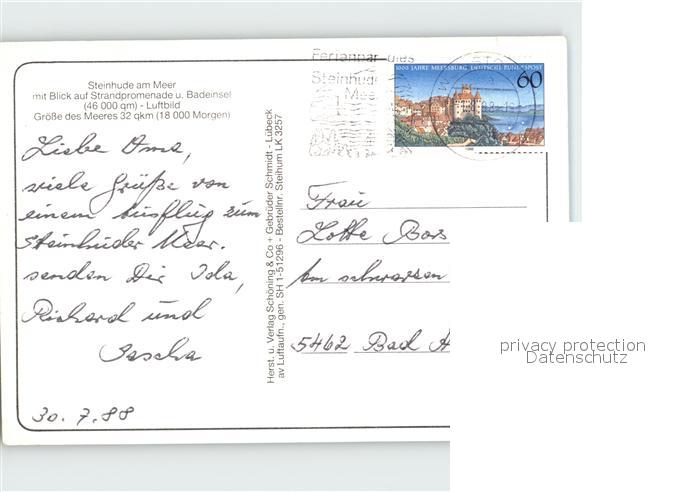 Steinhude am Meer
mit Blick auf Strandpromenade u. Badeinsel
(46 000 qm) - Luftbild
Größe des Meeres 32 qkm (18 000 Morgen)
Liebe Oma,
viele Grüße von
einem Ausflug zum
Steinhuder Meer.
senden Dir Ida,
Richard und
Sascha
30. 7. 88
Herst. u. Verlag Schöning & Co + Gebrüder Schmidt - Lübeck
av Luftaufn., gen. SH 1-51296 - Bestellnr. Steihum LK 3257
Steinhude
Meer
1000 JAHRE MEERSBURG DEUTSCHE BUNDESPOST
60
Frau
Lotte
Am schwarzen
5462 Bad
privacy protection
Datenschutz